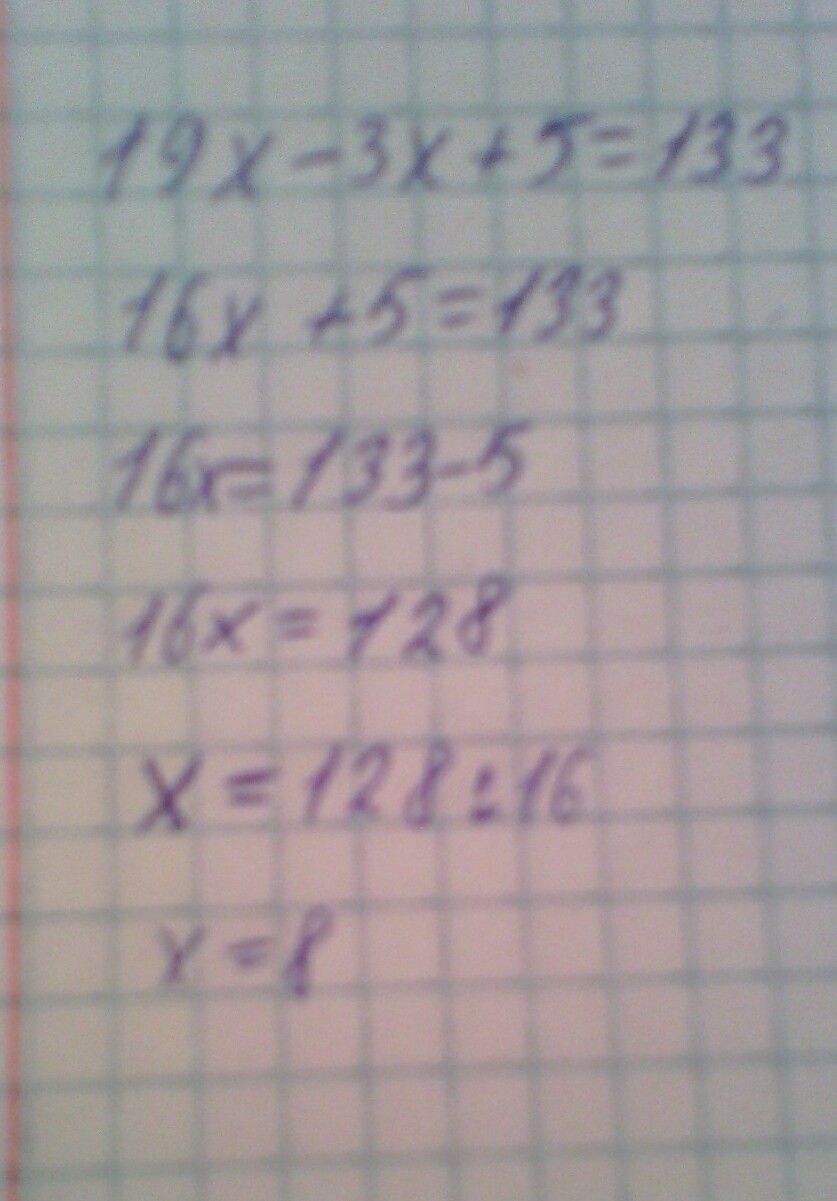 19x-3x+5=133
16x +5=133
16x=133-5
16x=128
x=128:16
x=8